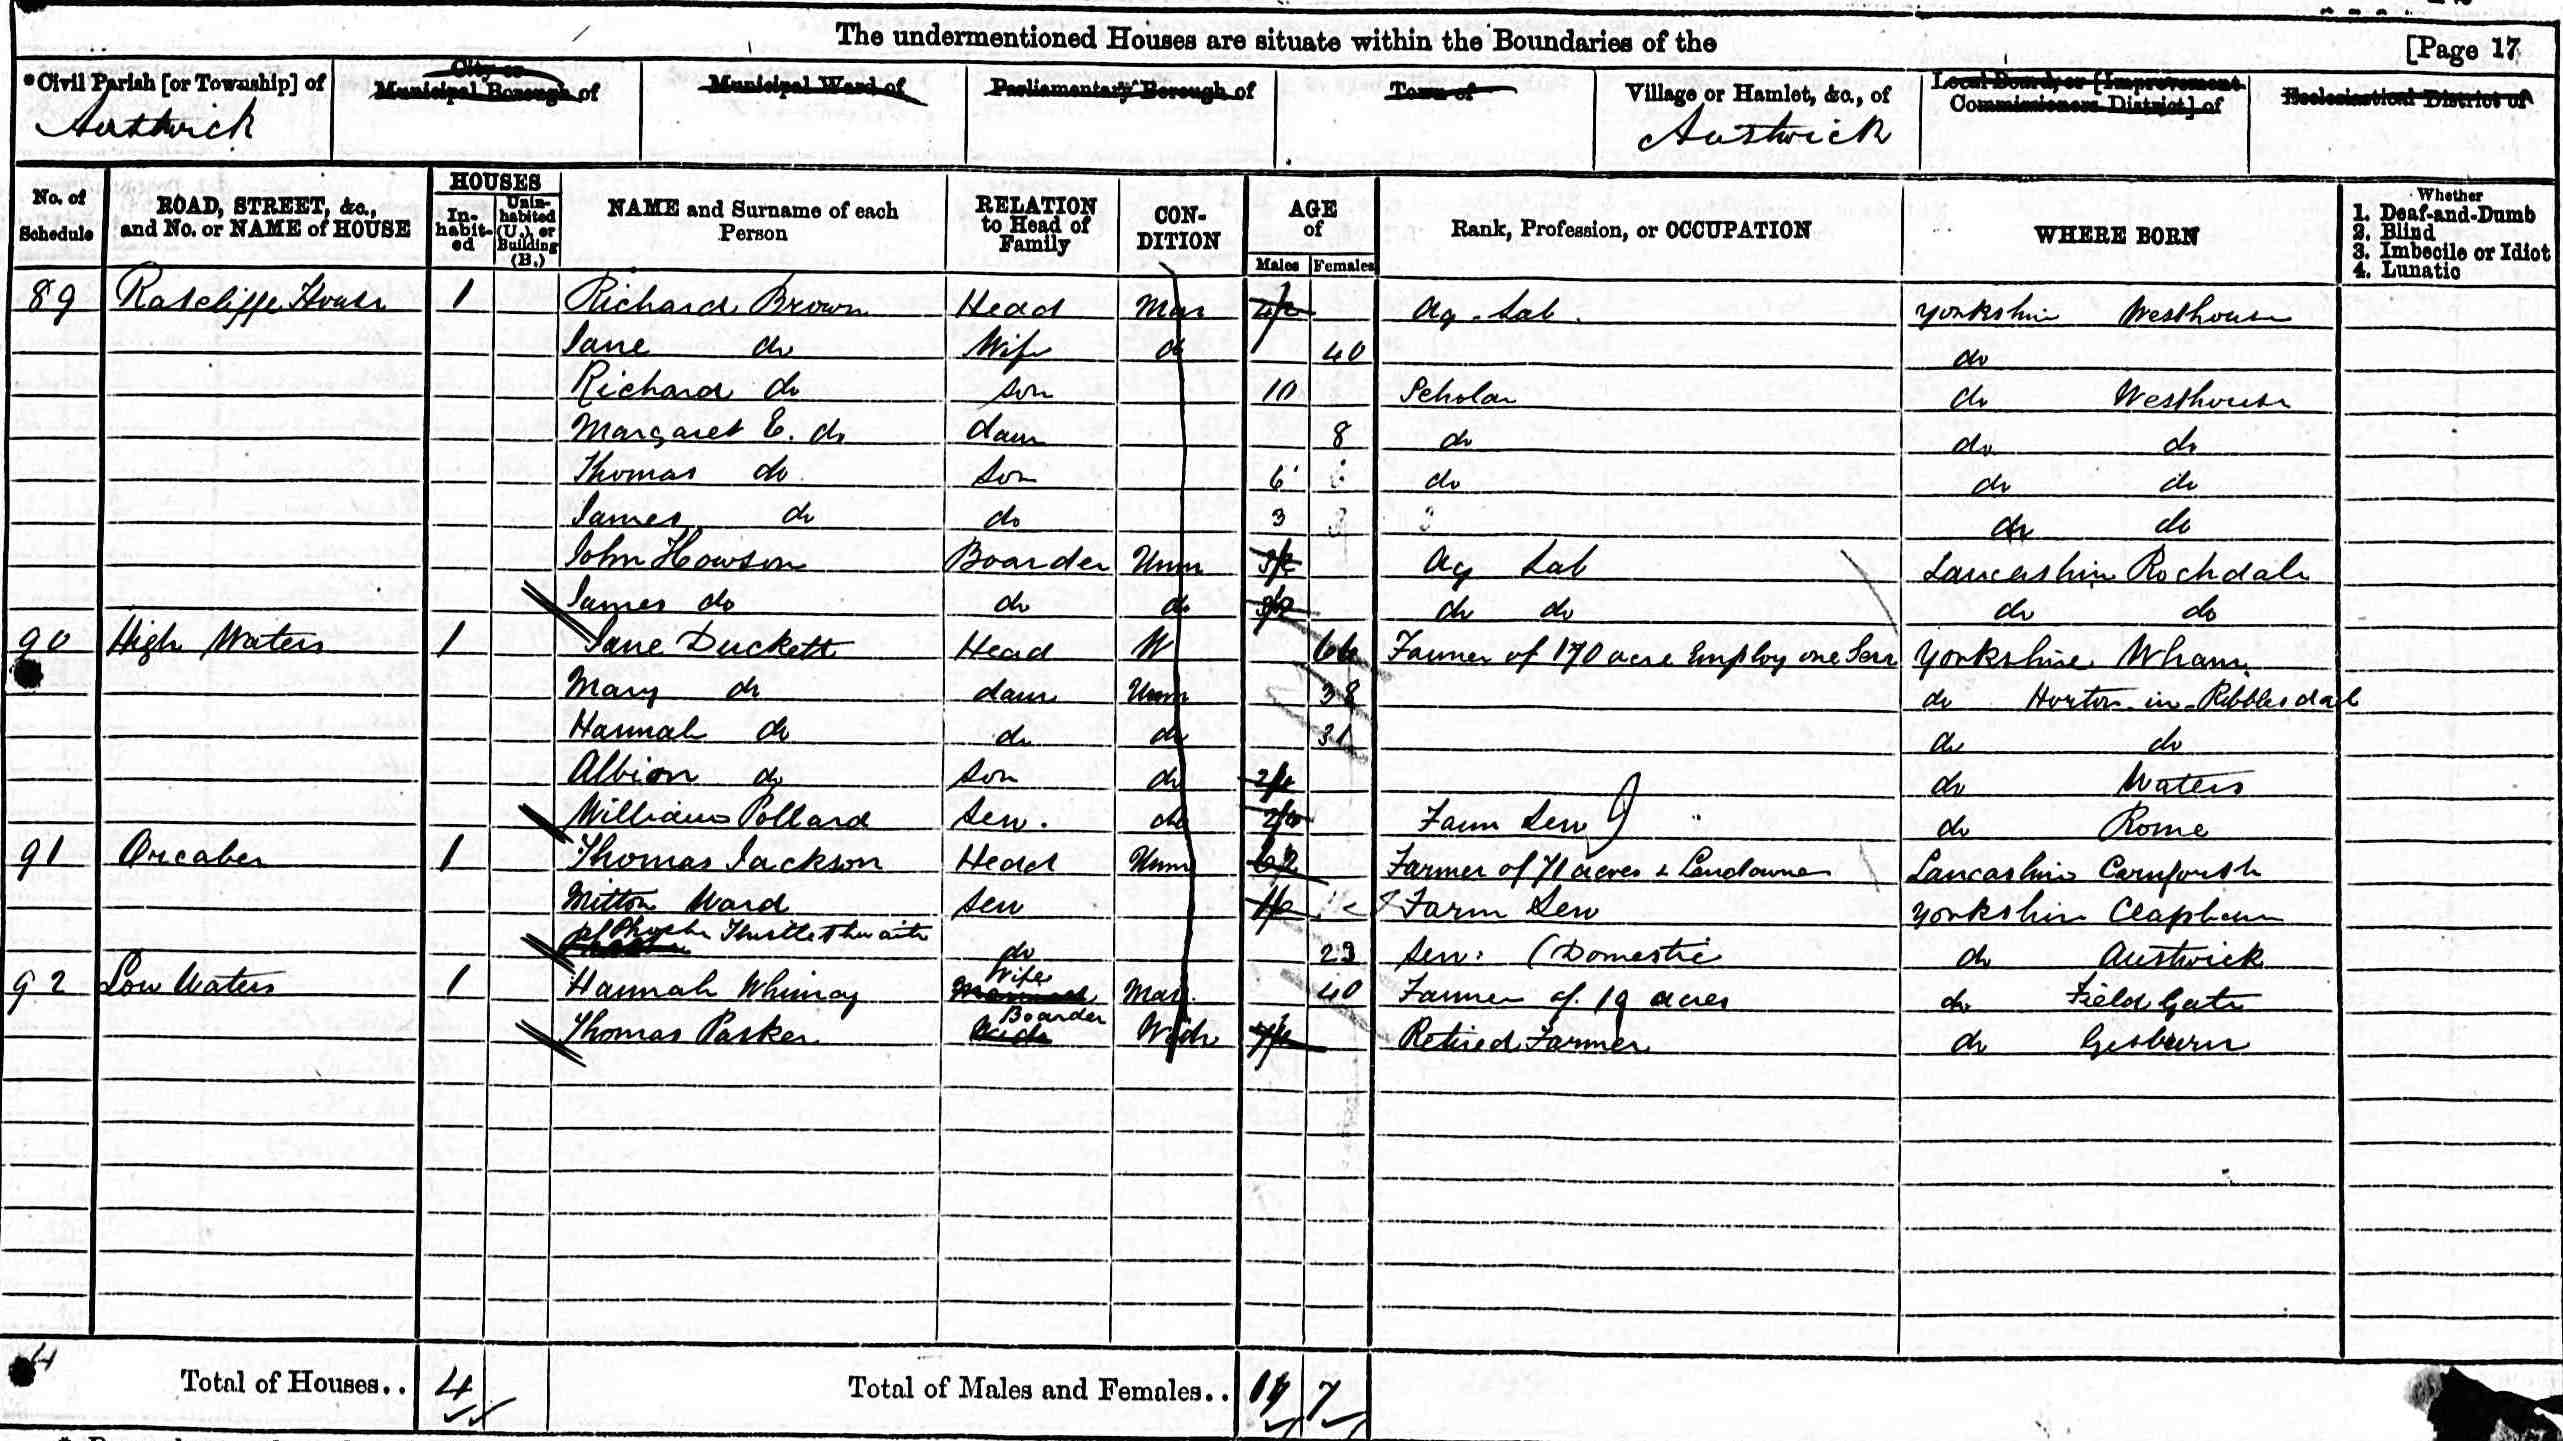 The undermentioned Houses are situate within the Boundaries of the
[Page 17
*Civil Parish [or Township] of
City or Municipal Borough of
Municipal Ward of
Parliamentary Borough of
Town of
Village or Hamlet, &c., of
Local Board, or [Improvement Commissioners District] of
Ecclesiastical District of
Austwick
Austwick
No. of Schedule
ROAD, STREET, &c., and No. or NAME of HOUSE
HOUSES
In-habit-ed
Unin-habited (U.), or Building (B.)
NAME and Surname of each Person
RELATION to Head of Family
CON-DITION
AGE of
Males
Females
Rank, Profession, or OCCUPATION
WHERE BORN
Whether
1. Deaf-and-Dumb
2. Blind
3. Imbecile or Idiot
4. Lunatic
89 Ratcliffe House 1 Richard Brown Head Mar Ag. Lab. Yorkshire Westhouse
Jane do Wife do 40 do
Richard do son 10 Scholar do Westhouse
Margaret E. do daur 8 do do do
Thomas do son 6 do do do
James do do 3 do do
John Howson Boarder Unm Ag Lab Lancashire Rochdale
James do do do do do do do
90 High Waters 1 Jane Duckett Head W 66 Farmer of 170 acre Employ one Serv Yorkshire Wham
Mary do daur Unm 38 do Horton-in-Ribblesdale
Hannah do do do 31 do do
Albion do son do do Waters
William Pollard Serv. do Farm Serv do Rome
91 Orcaber 1 Thomas Jackson Head Unm 62 Farmer of 71 acres & Landowner Lancashire Carnforth
Mitton Ward Serv Farm Serv Yorkshire Clapham
Phoebe Thistlethwaite do 23 Serv: (Domestic do Austwick
92 Low Waters 1 Hannah Whinray Wife Mar. 40 Farmer of 19 acres do Field Gate
Thomas Parker Boarder Widr Retired Farmer do Gisburn
Total of Houses.. 4
Total of Males and Females.. 7